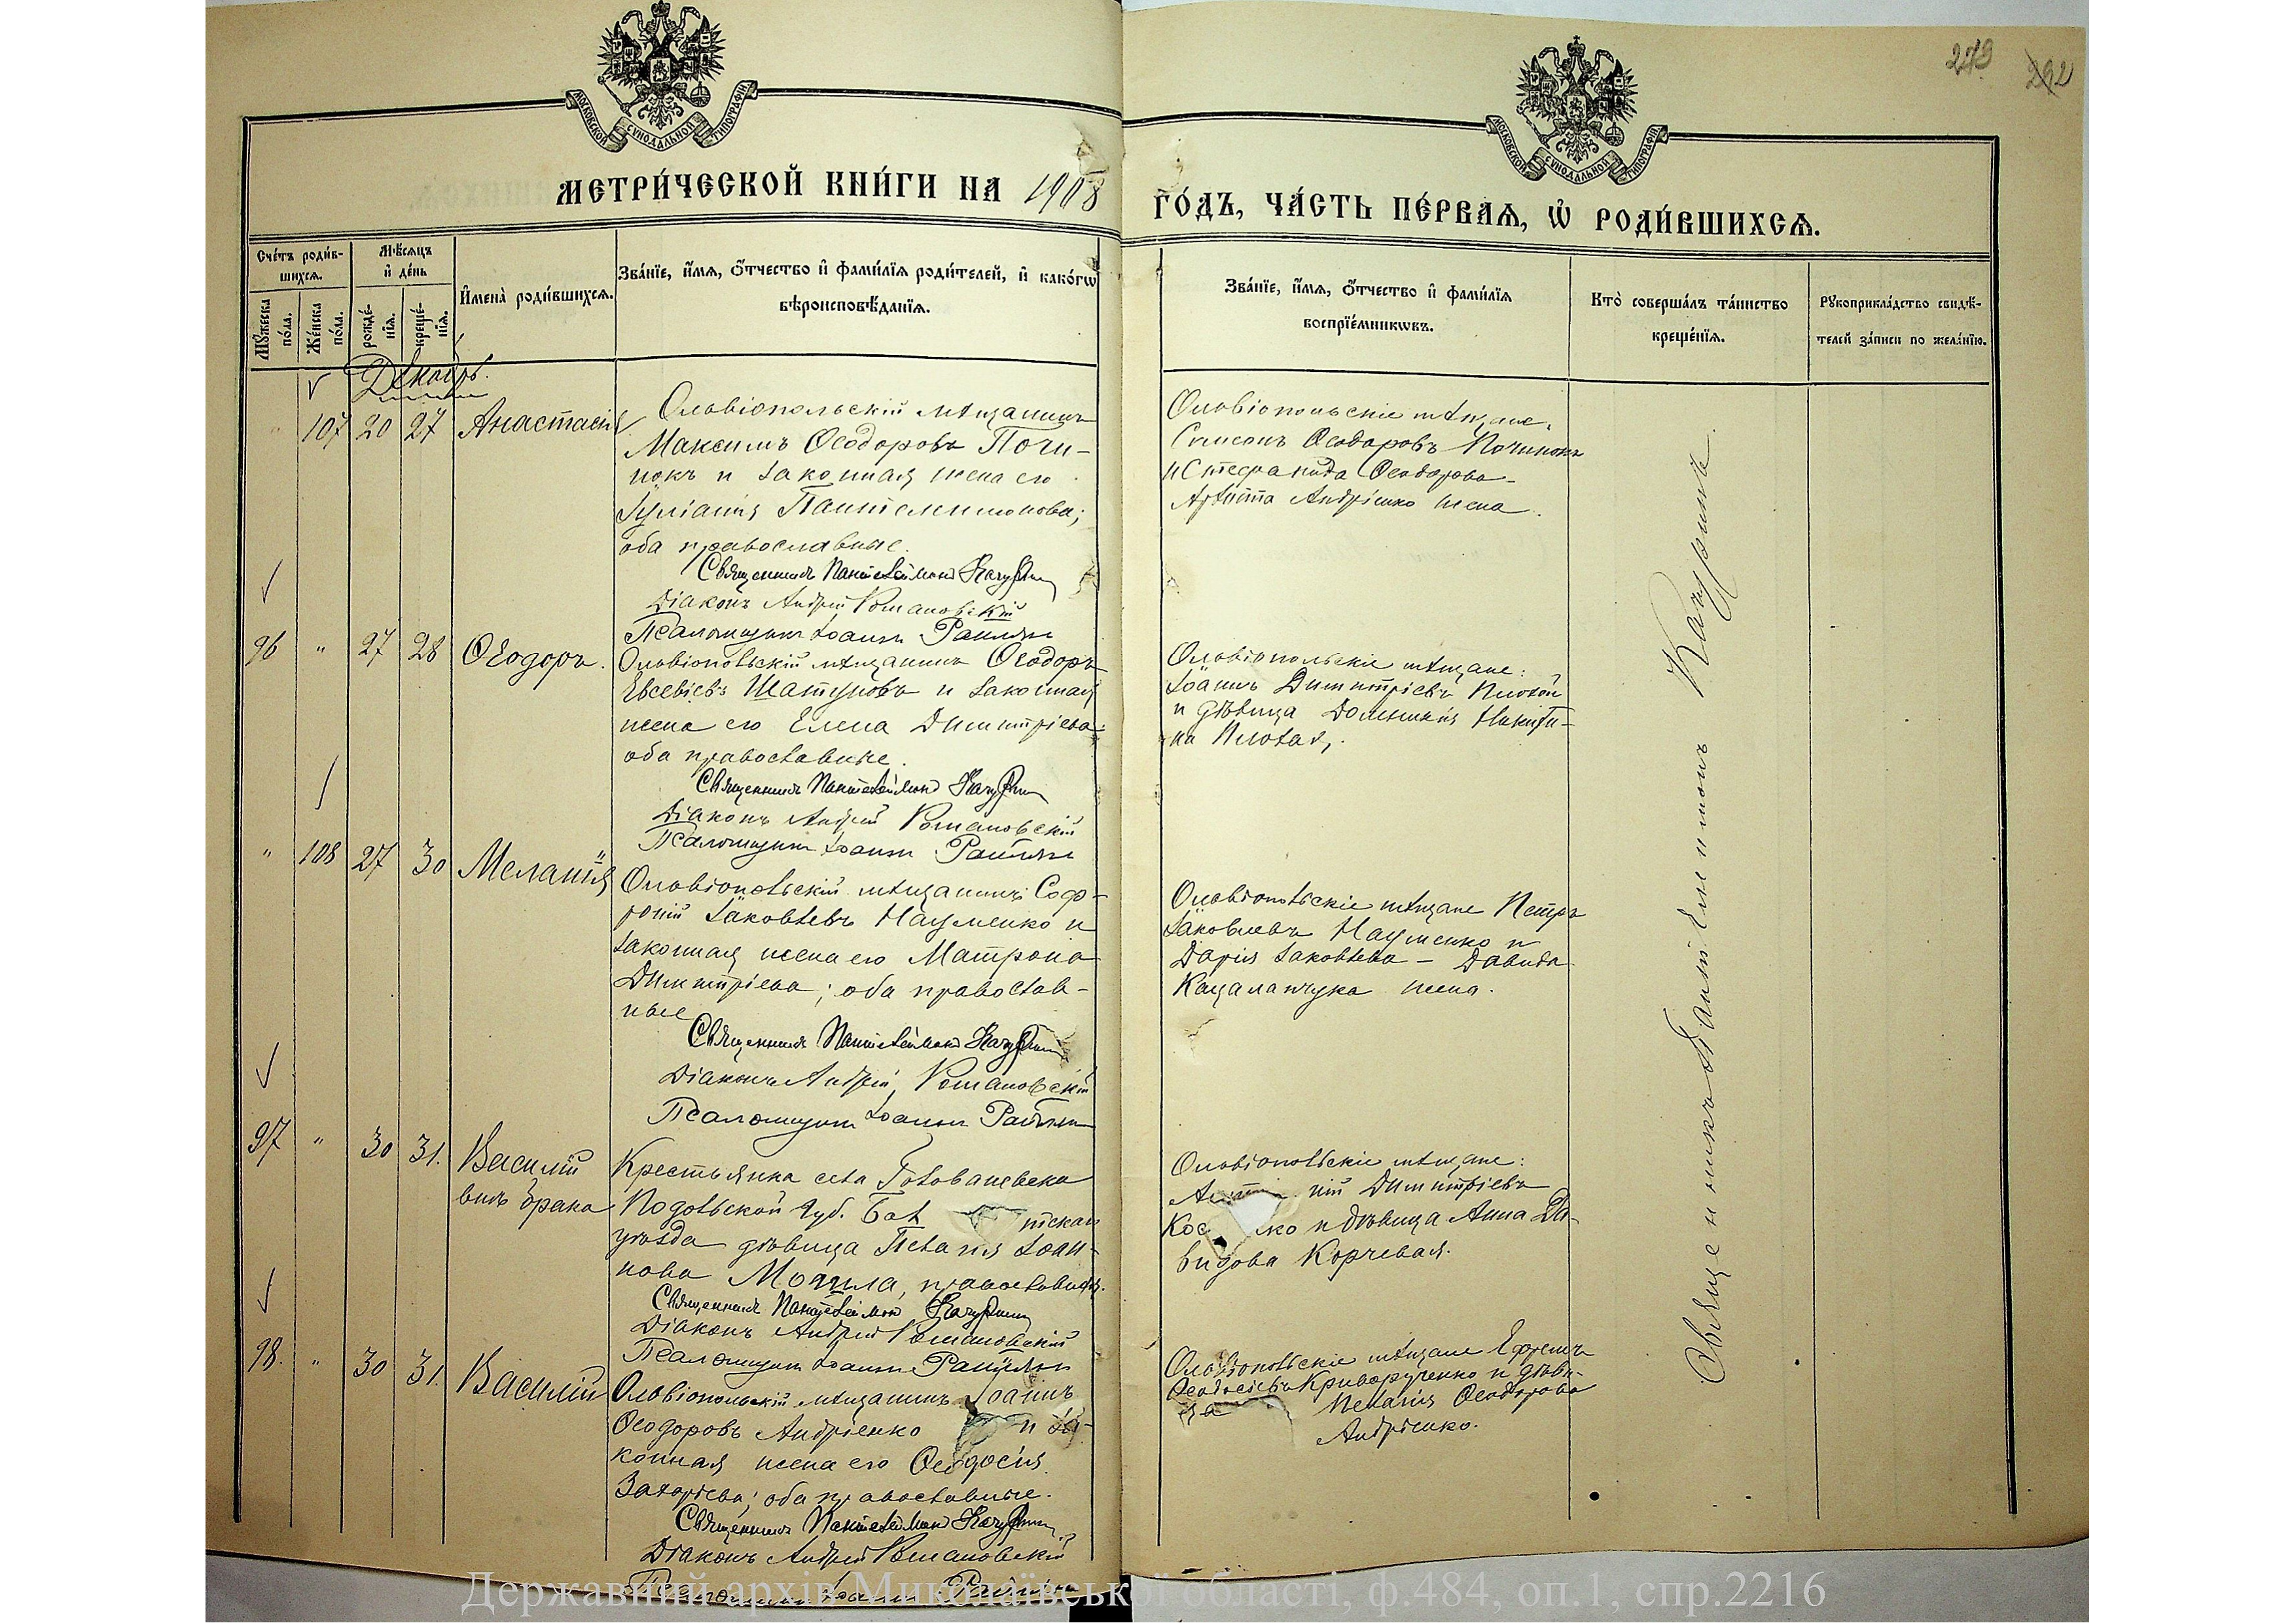 279 292
МОСКОВСКОЙ СѴНОДАЛЬНОЙ ТИПОГРАФІИ
МОСКОВСКОЙ СѴНОДАЛЬНОЙ ТИПОГРАФІИ
МЕТРИ́ЧЕСКОЙ КНИ́ГИ НА 1908
ГО́ДЪ, ЧА́СТЬ ПЕ́РВАЯ, Ѡ РОДИ́ВШИХСЯ.
Сче́тъ роди́в-
шихся.
Мѣ́сяцъ
и де́нь
Му́жеска
по́ла.
Же́нска
по́ла.
рожде́-
нїя.
креще́-
нїя.
Имена̀ роди́вшихся.
Зва́нїе, и́мя, о́тчество и фами́лїя роди́телей, и како́гѡ
вѣроисповѣ́данїя.
Зва́нїе, и́мя, о́тчество и фами́лїя
воспрїе́мникѡвъ.
Кто̀ соверша́лъ та́инство
креще́нїя.
Рукоприкла́дство свидѣ́-
телей за́писи по жела́нїю.
Декабрь.
" 107 20 27 Анастасія
Ольвіопольскій мѣщанинъ
Максимъ Ѳеодоровъ Почи-
нокъ и законная жена его
Іуліанія Пантелеимонова;
оба православные.
Священникъ Пантелеимонъ
Діаконъ Андрей Романовскій
Псаломщикъ Іоаннъ
Ольвіопольскіе мѣщане:
Симеонъ Ѳеодоровъ Починокъ
и Стефанида Ѳеодорова-
Андріенко жена.
96 " 27 28 Ѳеодоръ.
Ольвіопольскій мѣщанинъ Ѳеодоръ
Евсевіевъ Шатуновъ и законная
жена его Елена Димитріева;
оба православные.
Священникъ Пантелеимонъ
Діаконъ Андрей Романовскій
Псаломщикъ Іоаннъ
Ольвіопольскіе мѣщане:
Іоаннъ Димитріевъ
и дѣвица Никити-
на
" 108 27 30 Меланія
Ольвіопольскій мѣщанинъ Соф-
роній Іаковлевъ Науменко и
законная жена его Матрона
Димитріева; оба православ-
ные
Священникъ Пантелеимонъ
Діаконъ Андрей Романовскій
Псаломщикъ Іоаннъ
Ольвіопольскіе мѣщане Петръ
Іаковлевъ Науменко и
Дарія Іаковлева – Давида
жена.
97 " 30 31. Василій
внѣ брака
Крестьянка села Голованевска
Подольской губ. Бал тскаго
уѣзда дѣвица Пелагія Іоан-
нова Могила, православная.
Священникъ Пантелеимонъ
Діаконъ Андрей Романовскій
Псаломщикъ Іоаннъ
Ольвіопольскіе мѣщане:
Димитріевъ
Кос нко и дѣвица Анна Да-
видова Корчевая.
98. " 30 31. Василій
Ольвіопольскій мѣщанинъ Іоаннъ
Ѳеодоровъ Андріенко и за-
конная жена его Ѳеодосія
Захаріева; оба православные.
Священникъ Пантелеимонъ
Діаконъ Андрей Романовскій
Псаломщикъ Іоаннъ
Ольвіопольскіе мѣщане Ефремъ
Ѳеодосіевъ Криворученко и дѣви-
ца Пелагія Ѳеодорова
Андріенко.
Священникъ
Державний архів Миколаївської області, ф.484, оп.1, спр.2216